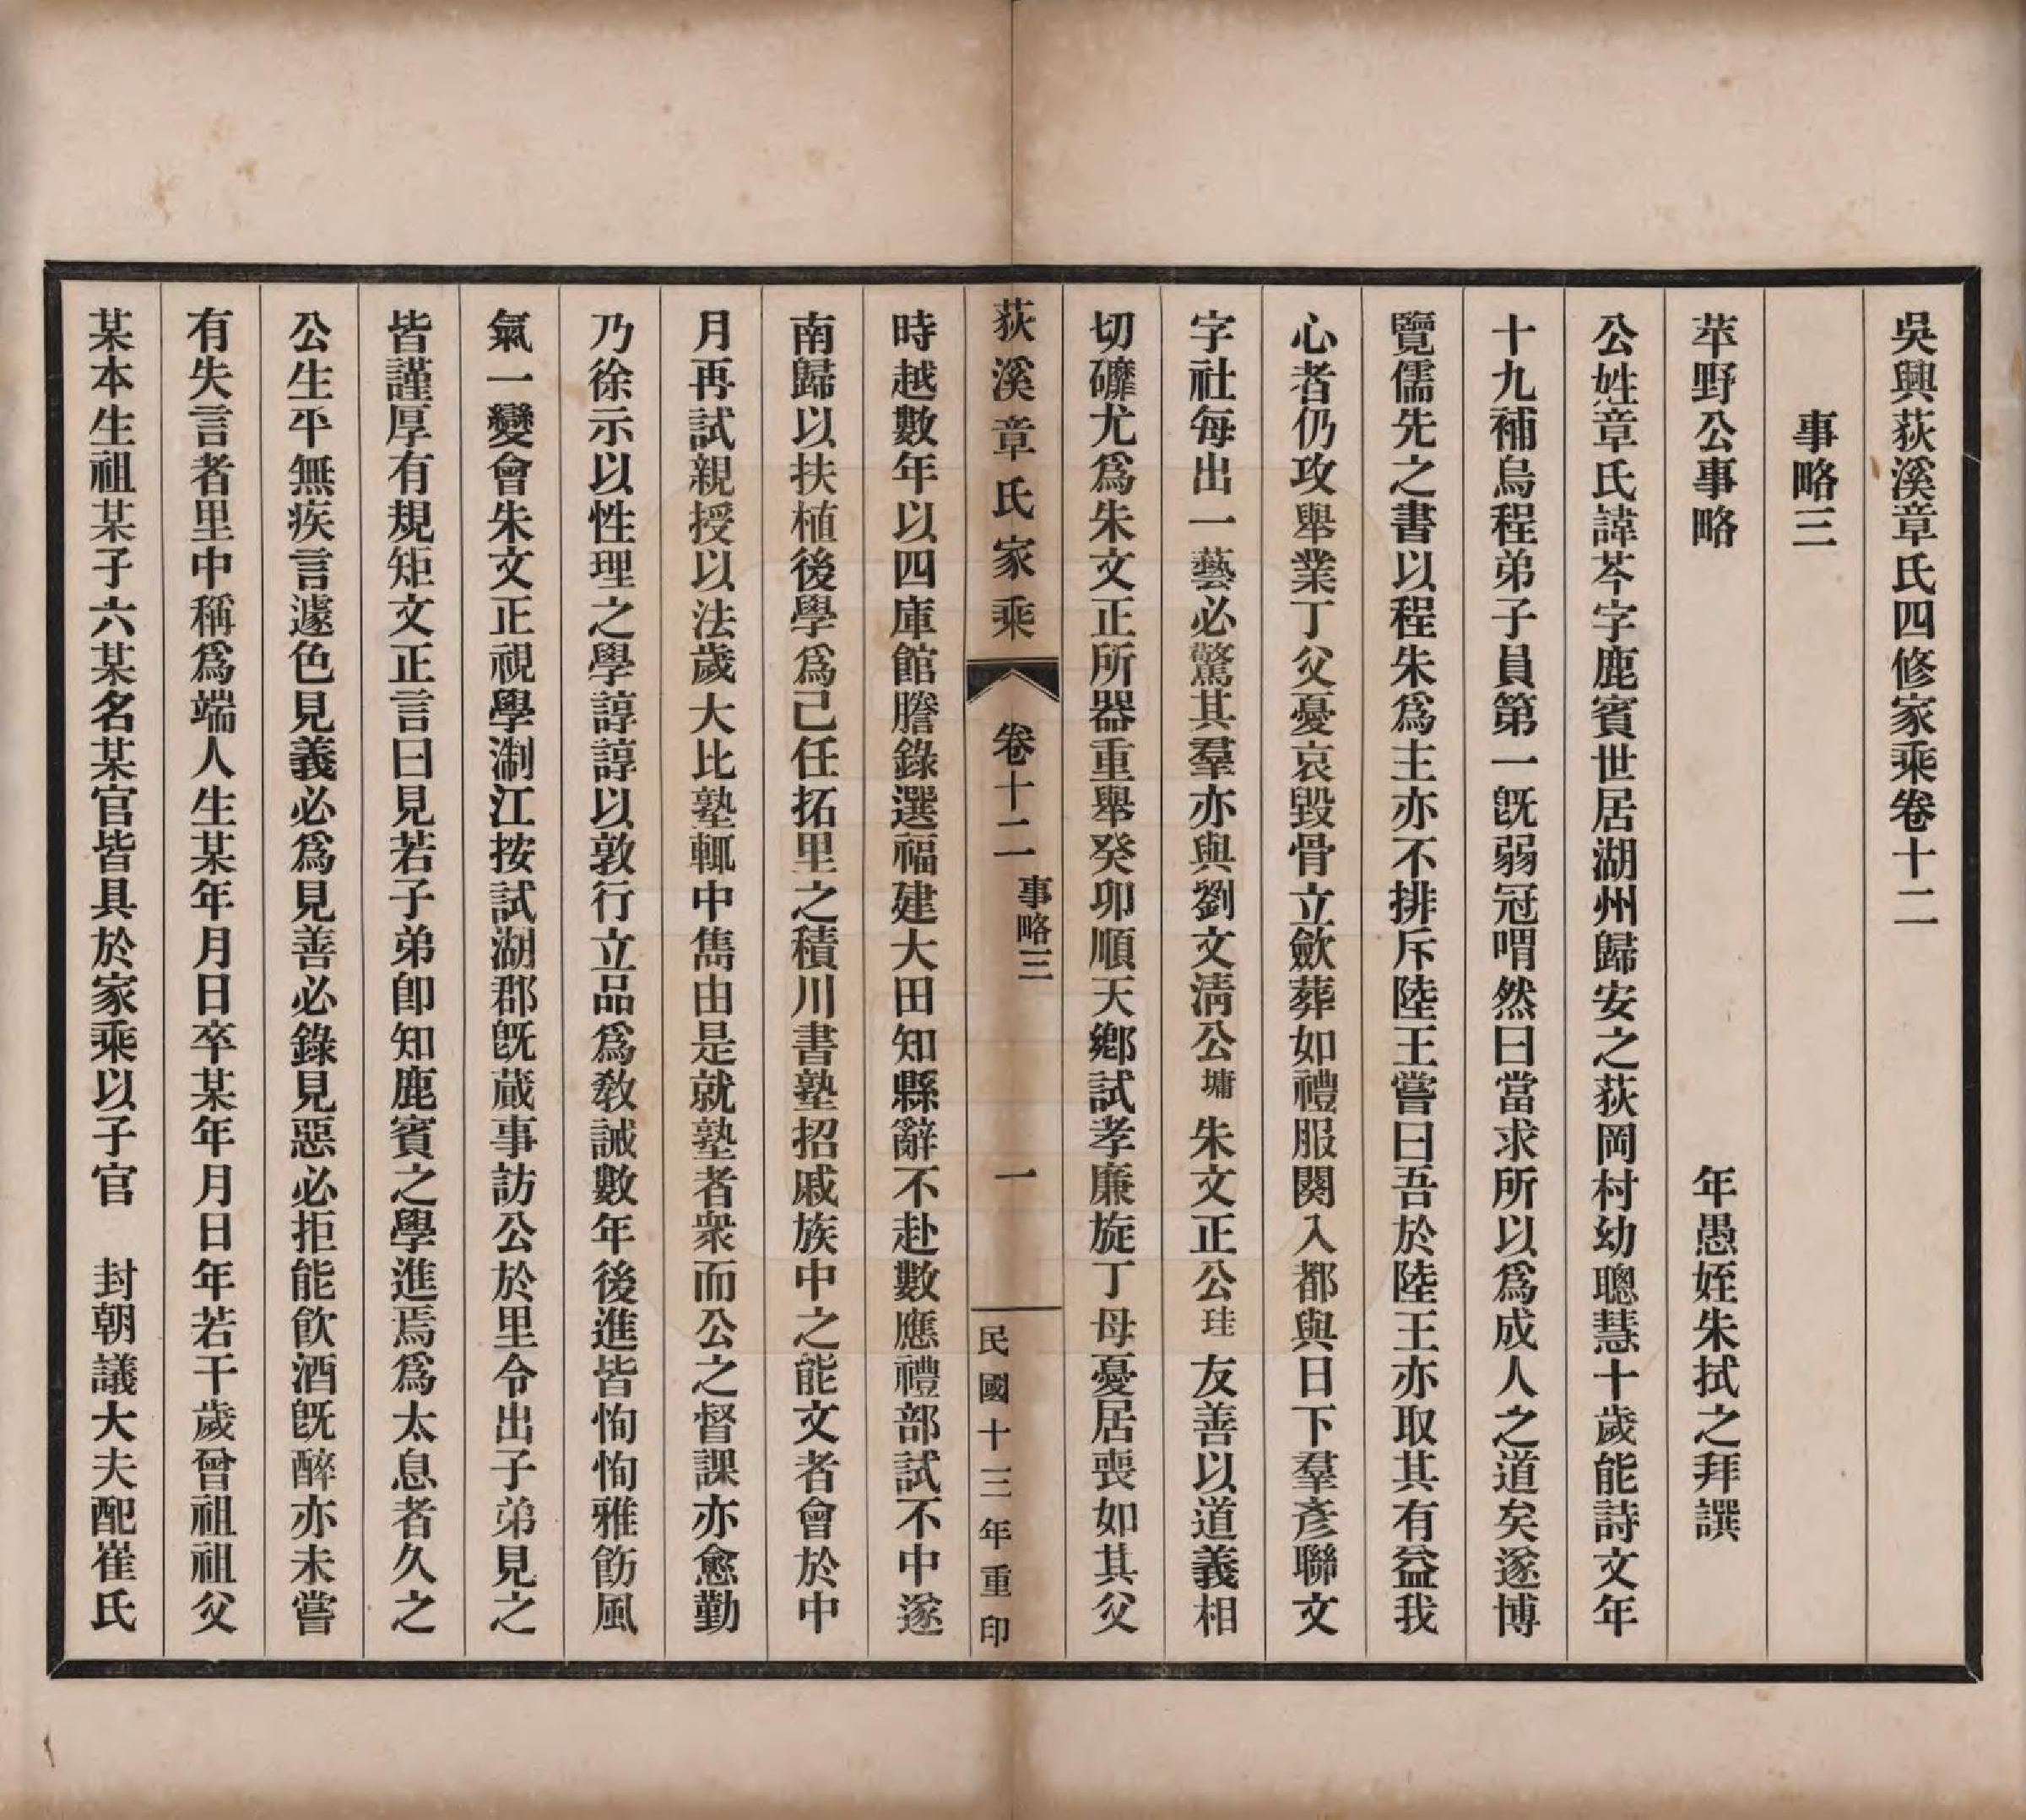 吳興荻溪章氏四修家乘卷十二
事略三
苹野公事略　年愚姪朱拭之拜譔
公姓章氏諱芩字鹿賓世居湖州歸安之荻岡村幼聰慧十歲能詩文年
十九補烏程弟子員第一旣弱冠喟然曰當求所以爲成人之道矣遂博
覽儒先之書以程朱爲主亦不排斥陸王嘗曰吾於陸王亦取其有益我
心者仍攻舉業丁父憂哀毀骨立歛葬如禮服闋入都與日下羣彥聯文
字社每出一藝必驚其羣亦與劉文淸公墉朱文正公珪友善以道義相
切礳尤爲朱文正所器重舉癸卯順天鄉試孝廉旋丁母憂居喪如其父
荻溪章氏家乘　卷十二　事略三　一　民國十三年重印
時越數年以四庫館謄錄選福建大田知縣辭不赴數應禮部試不中遂
南歸以扶植後學爲己任拓里之積川書塾招戚族中之能文者會於中
月再試親授以法歲大比塾輒中雋由是就塾者衆而公之督課亦愈勤
乃徐示以性理之學諄諄以敦行立品爲敎誡數年後進皆恂恂雅飭風
氣一變會朱文正視學淛江按試湖郡旣蕆事訪公於里令出子弟見之
皆謹厚有規矩文正言曰見若子弟卽知鹿賓之學進焉爲太息者久之
公生平無疾言遽色見義必爲見善必錄見惡必拒能飮酒旣醉亦未嘗
有失言者里中稱爲端人生某年月日卒某年月日年若干歲曾祖祖父
某本生祖某子六某名某官皆具於家乘以子官　封朝議大夫配崔氏